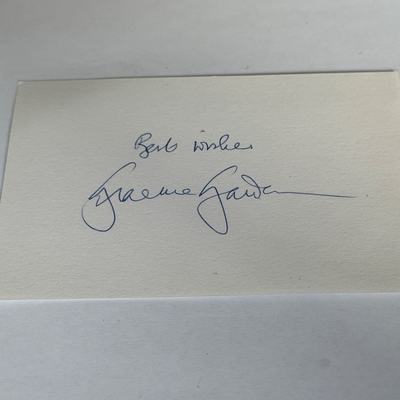 Best wishes
Graeme Garden